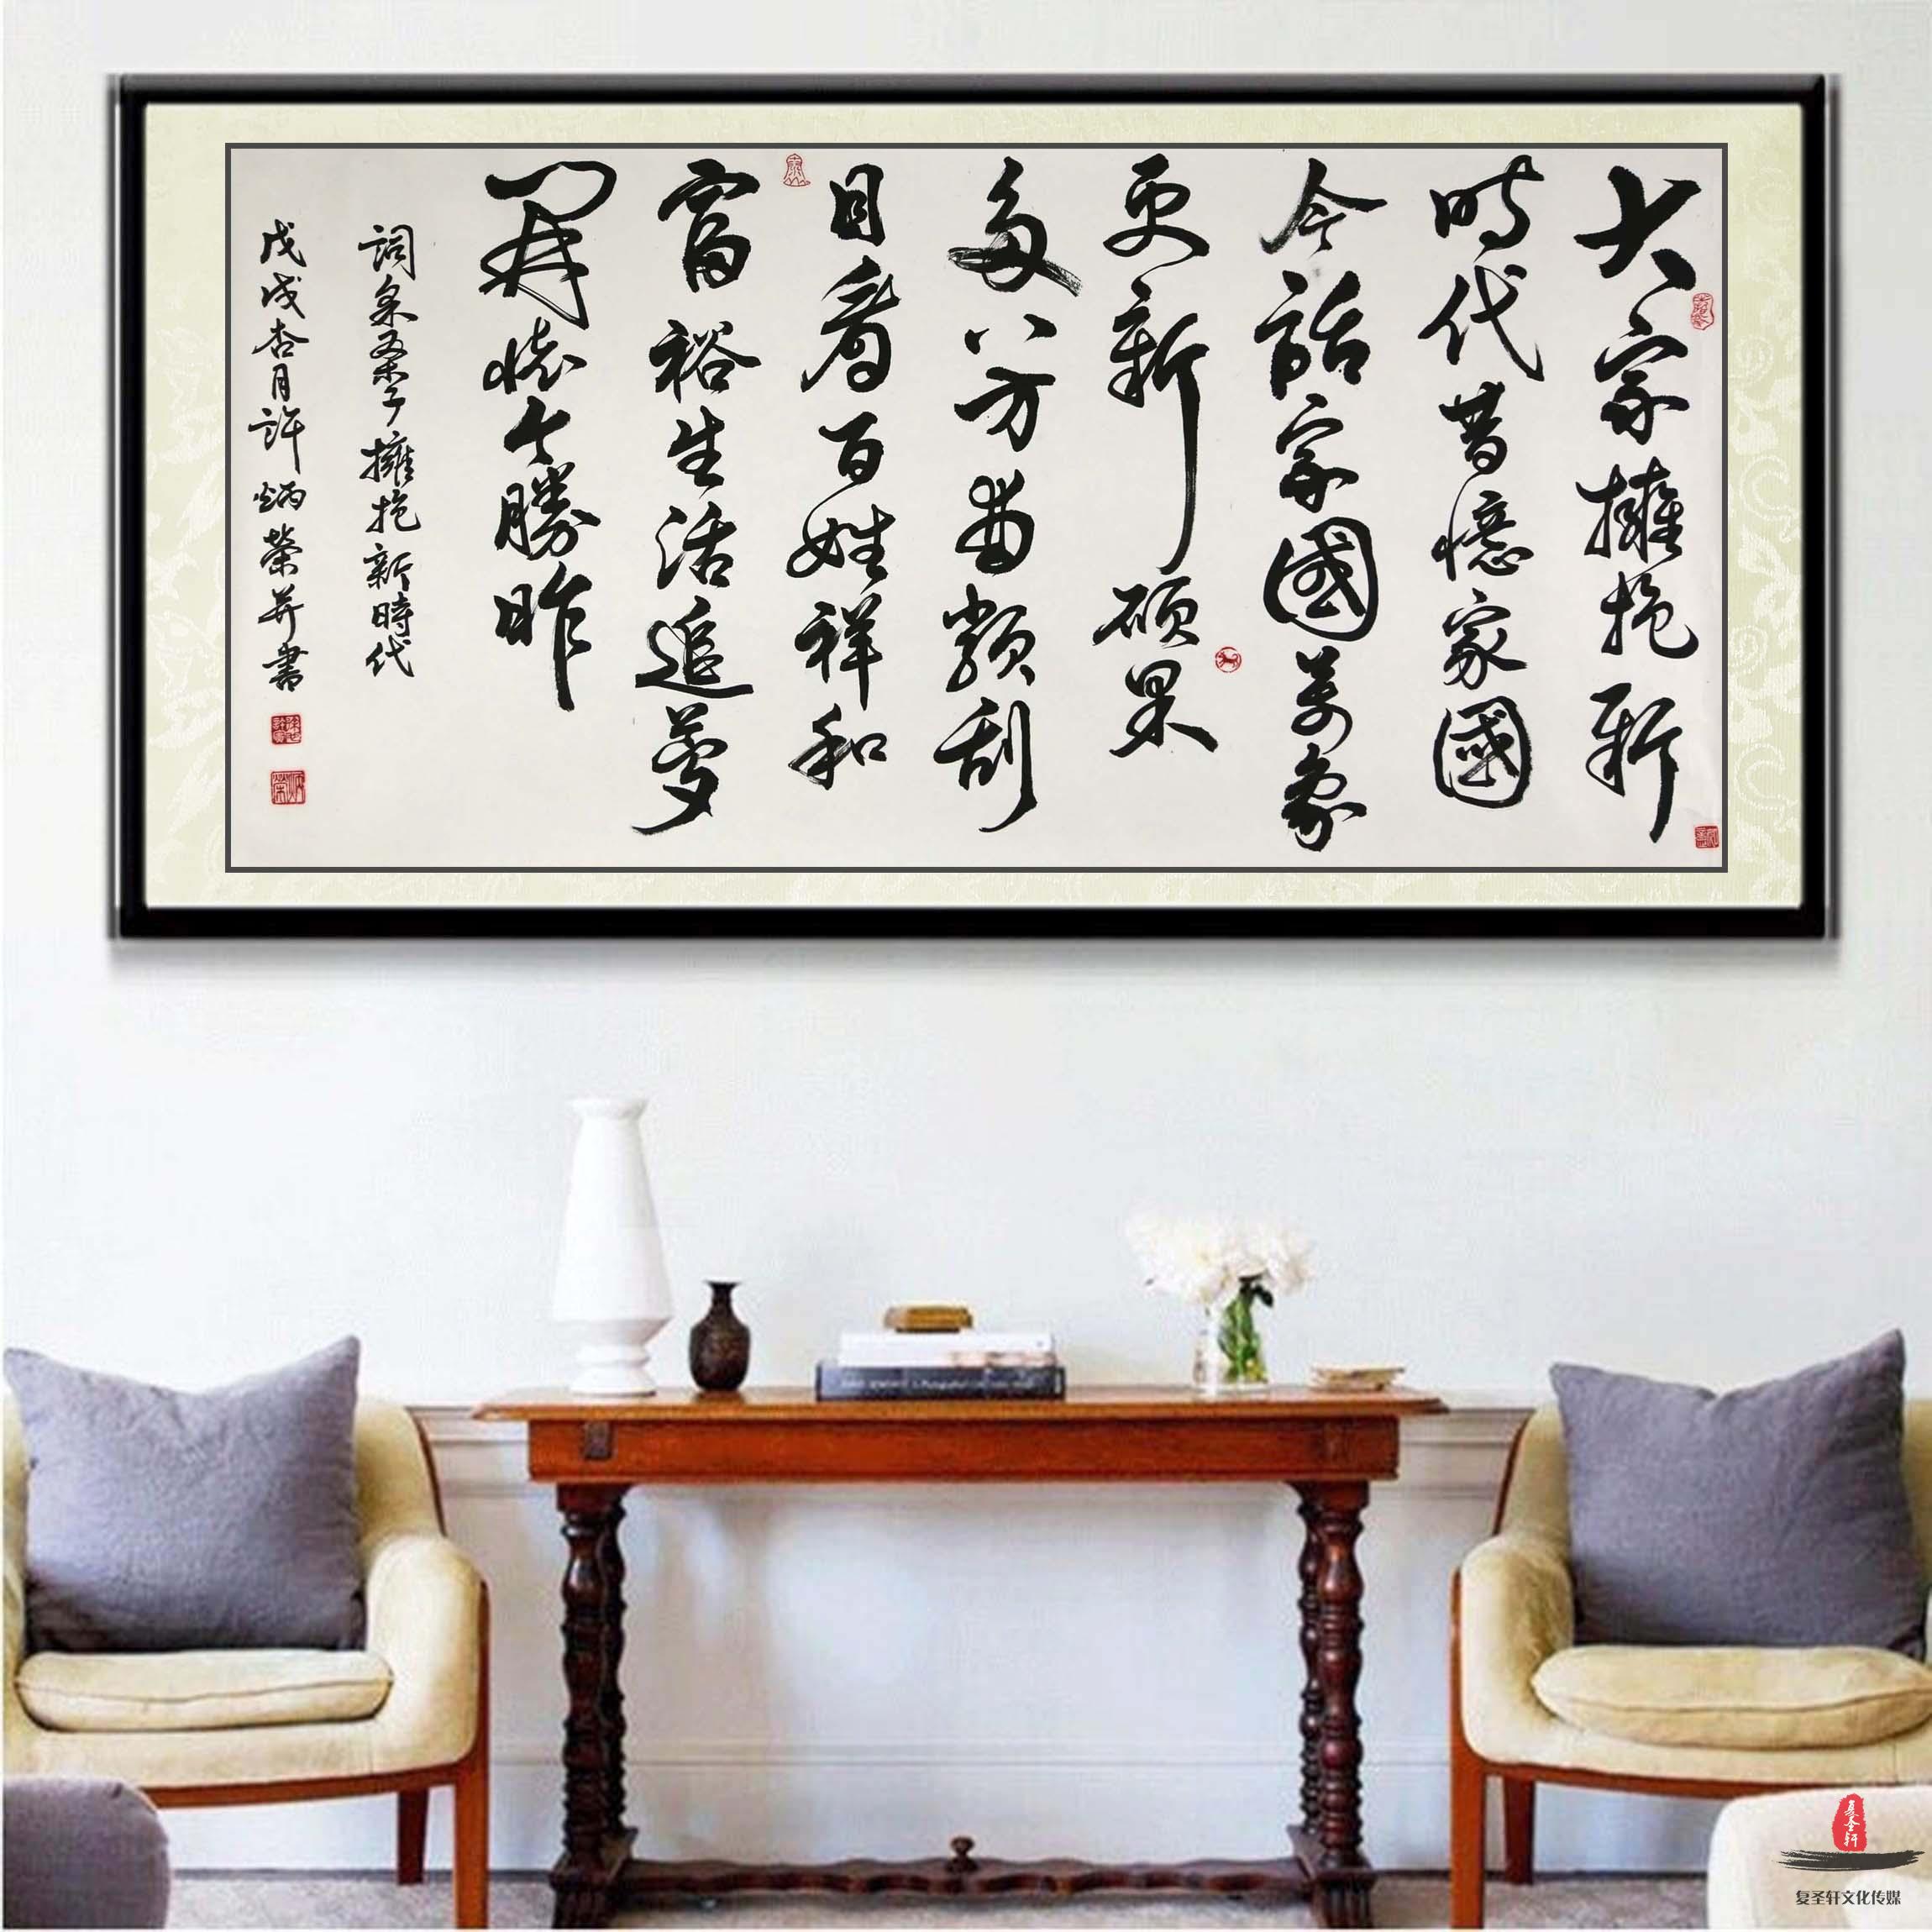 大家擁抱新
時代昔憶家國
今話家國萬象
更新碩果
多八方番頻刮
目看百姓祥和
富裕生活追夢
開懷今勝昨
詞采桑子擁抱新時代
戊戌杏月許炳榮并書
复圣轩
复圣轩文化传媒